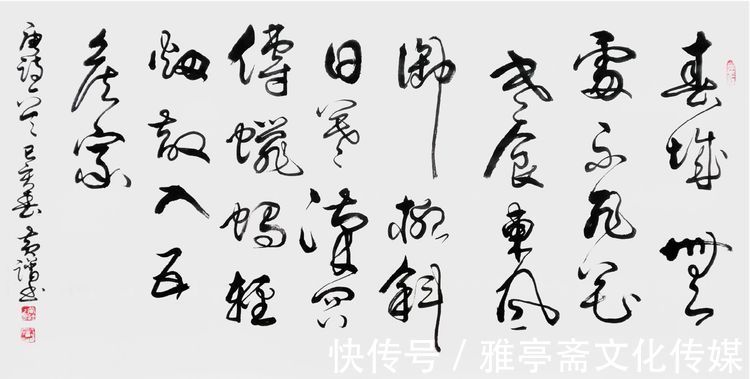 春城無
處不飛花
寒食東風
御柳斜
日暮漢宮
傳蠟燭輕
烟散入五
侯家
唐詩一首 己亥春
快传号 / 雅亭斋文化传媒